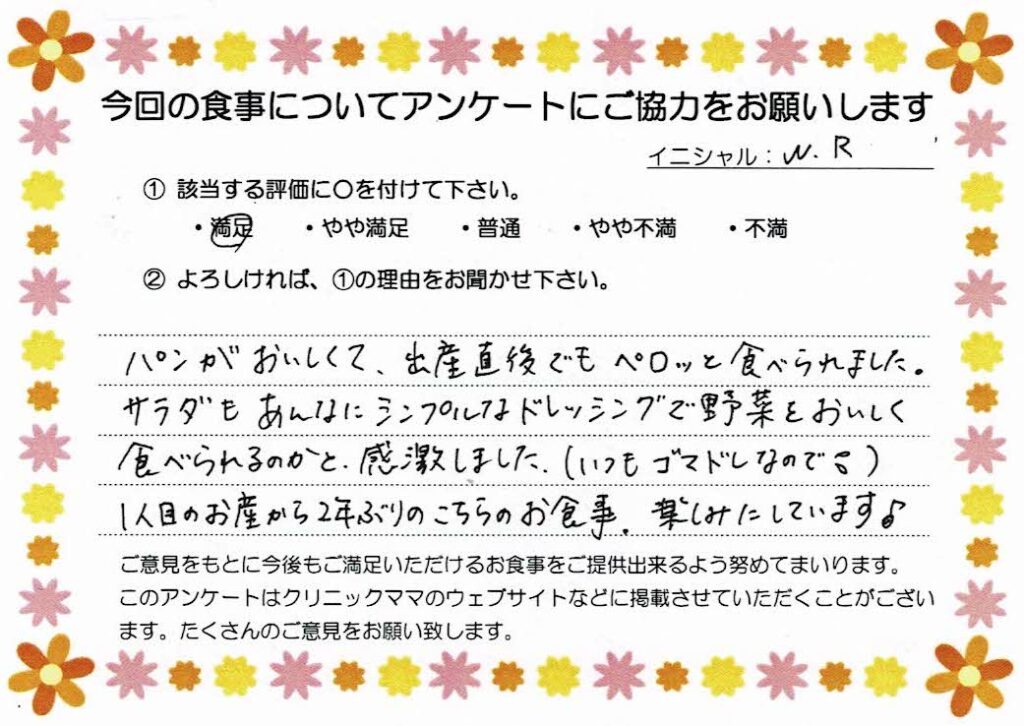 今回の食事についてアンケートにご協力をお願いします
イニシャル：N.R
① 該当する評価に〇を付けて下さい。
・満足 ・やや満足 ・普通 ・やや不満 ・不満
② よろしければ、①の理由をお聞かせ下さい。
パンがおいしくて、出産直後でもペロッと食べられました。
サラダもあんなにシンプルなドレッシングで野菜をおいしく
食べられるのかと、感激しました、(いつもゴマドレなので♪)
1人目のお産から2年ぶりのこちらのお食事、楽しみにしています♪
ご意見をもとに今後もご満足いただけるお食事をご提供出来るよう努めてまいります。
このアンケートはクリニックママのウェブサイトなどに掲載させていただくことがござい
ます。たくさんのご意見をお願い致します。